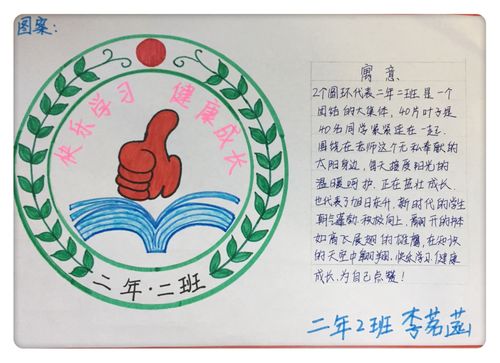 图案：
快乐学习 健康成长
二年·二班
寓意
2个圆环代表二年二班是一个
团结的大集体，40片叶子是
40名同学紧紧连在一起，
围绕在老师这个无私奉献的
太阳身边，每天接受阳光的
温暖呵护，正在茁壮成长，
也代表了旭日东升，新时代的学生
朝气蓬勃，积极向上，翻开的书本
如高飞展翅的雄鹰，在知识
的天空中翱翔，快乐学习，健康
成长，为自己点赞！
二年2班 李茗菡